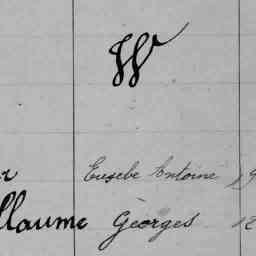 W
Eusebe Antoine
llaume Georges